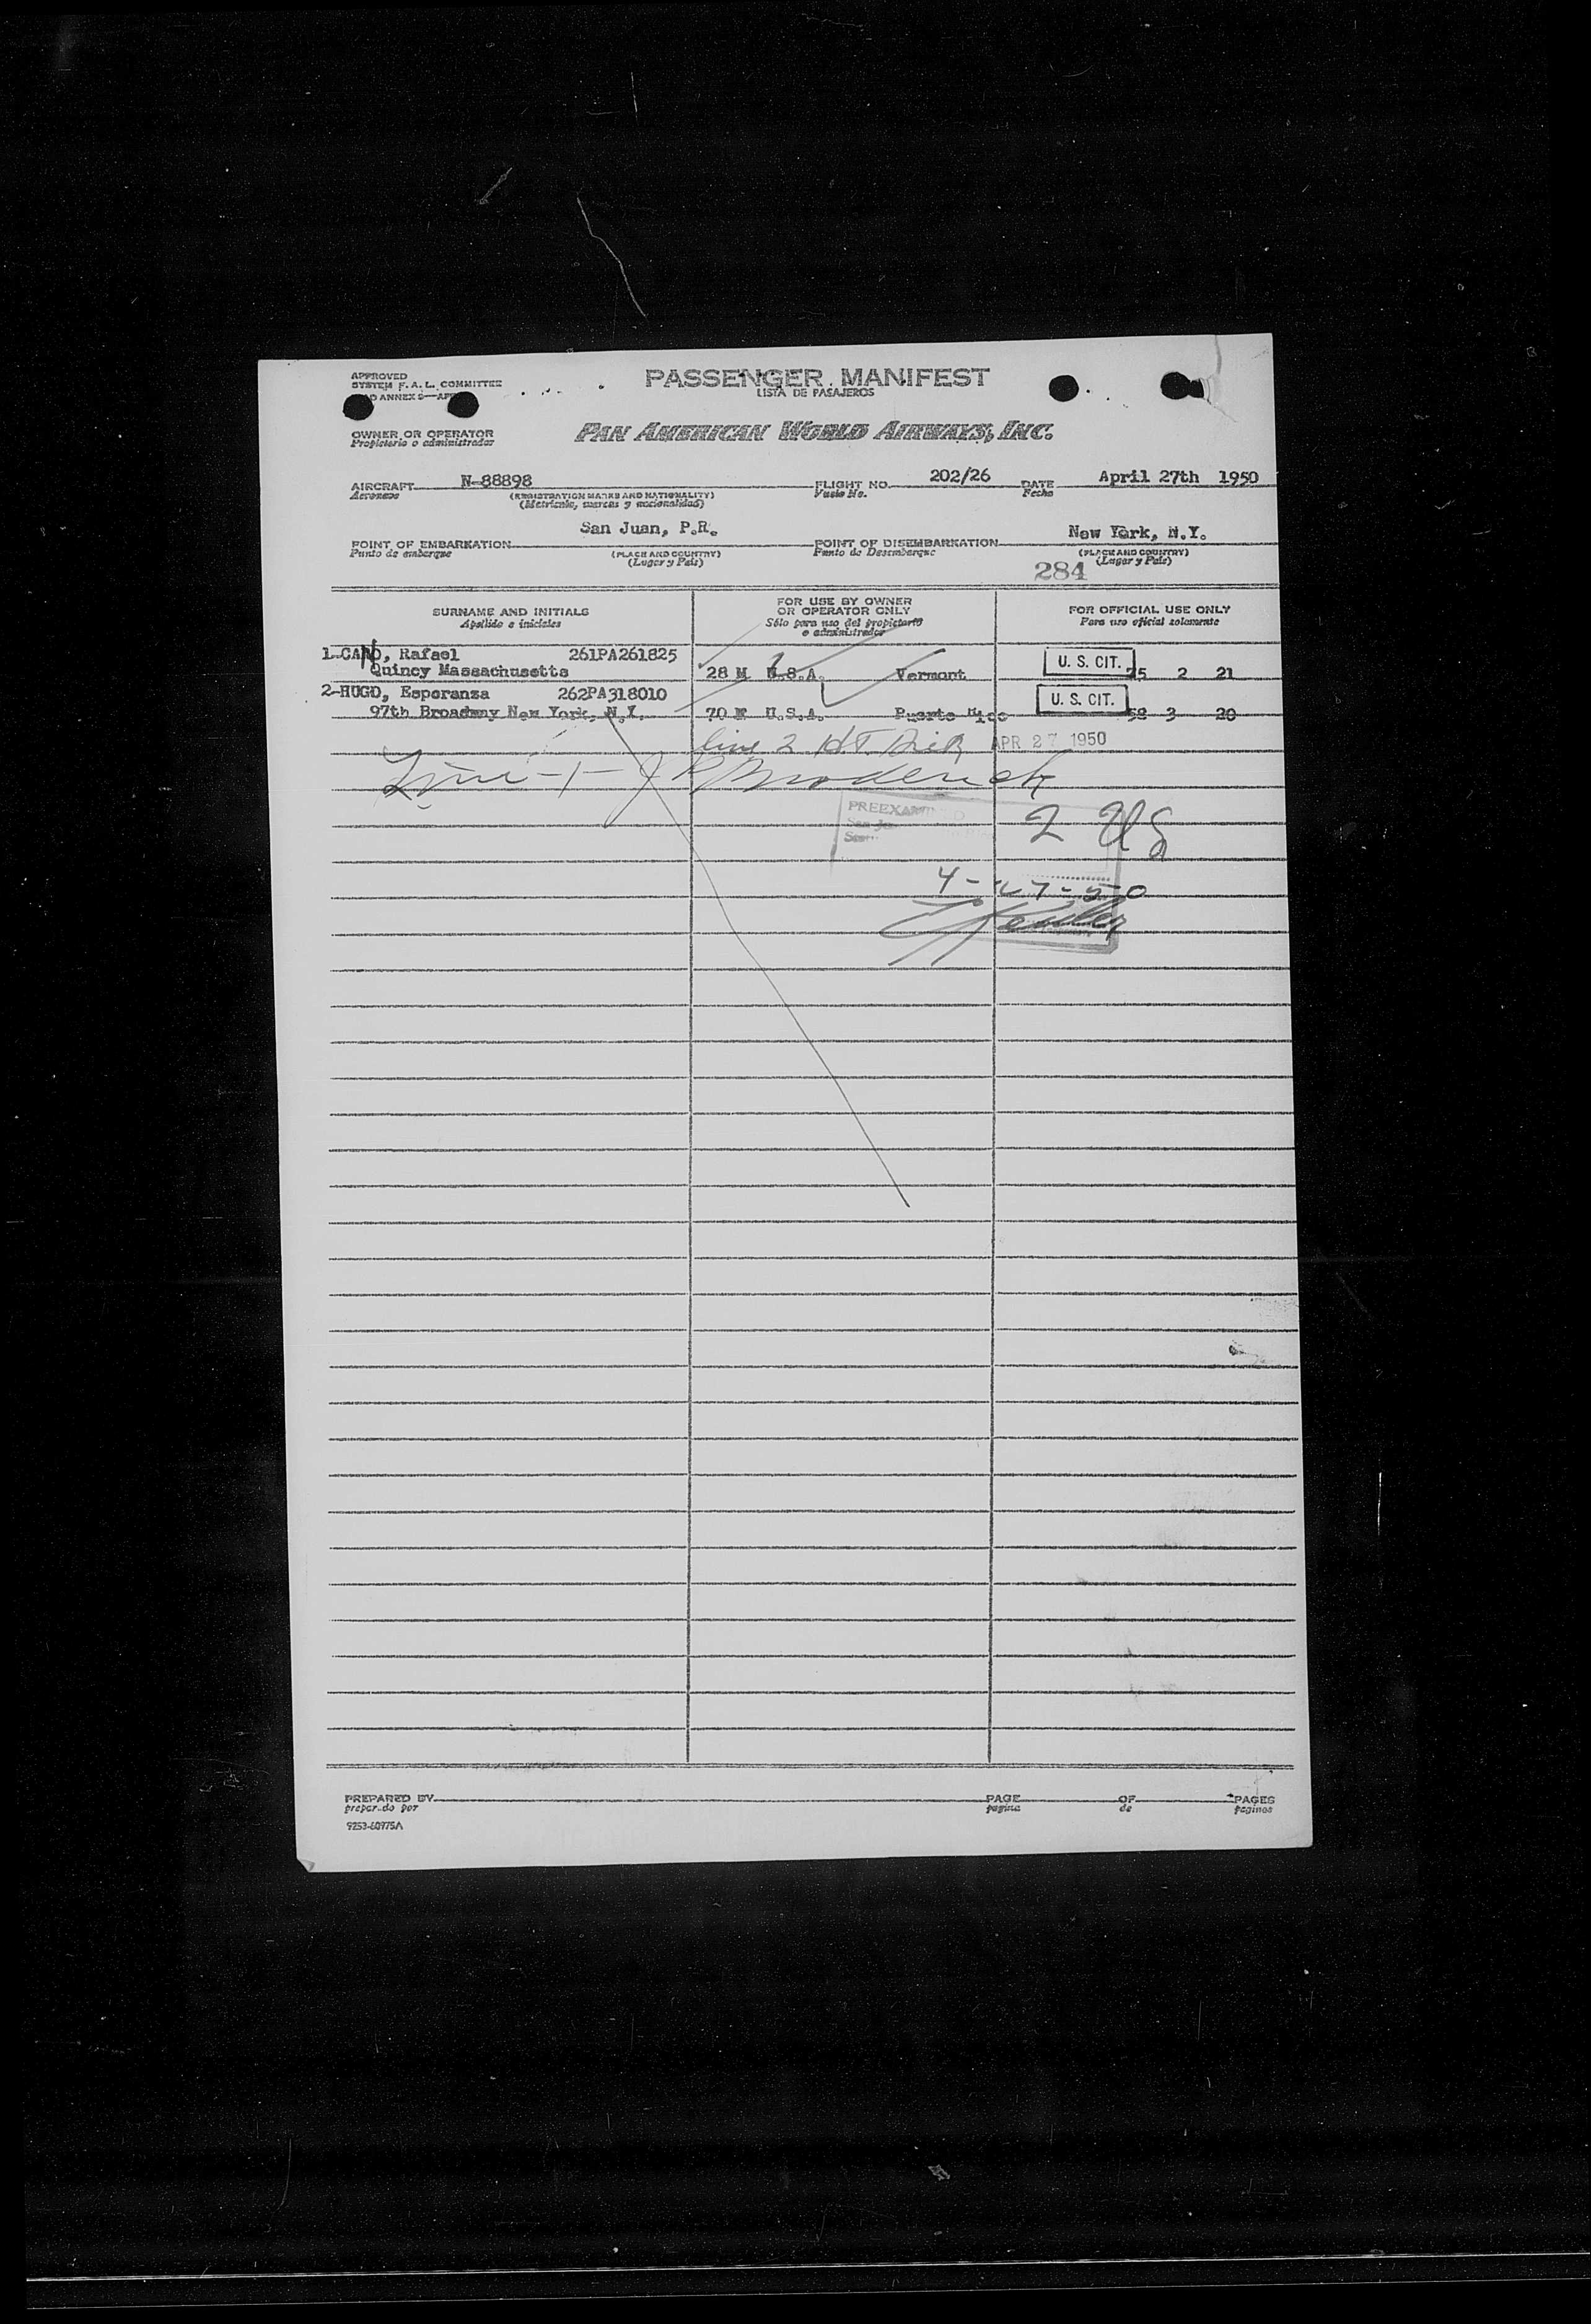 APPROVED
SYSTEM F. A. L. COMMITTEE
ANNEX 9—
PASSENGER MANIFEST
LISTA DE PASAJEROS
OWNER OR OPERATOR
Propietario o administrador
PAN AMERICAN WORLD AIRWAYS, INC.
AIRCRAFT N-88898 FLIGHT NO. 202/26 DATE April 27th 1950
Aeronave (REGISTRATION MARKS AND NATIONALITY) Vuelo No. Fecha
(Matricula, marcas y nacionalidad)
San Juan, P.R. New York, N.Y.
POINT OF EMBARKATION POINT OF DISEMBARKATION
Punto de embarque (PLACE AND COUNTRY) Punto de Desembarque (PLACE AND COUNTRY)
(Lugar y Pais) (Lugar y Pais)
284
SURNAME AND INITIALS FOR USE BY OWNER OR OPERATOR ONLY FOR OFFICIAL USE ONLY
Apellido e iniciales Sólo para uso del propietario o administrador Para uso oficial solamente
1-CANO, Rafael 261PA261825
Quincy Massachusetts 28 M U.S.A. Vermont U. S. CIT. 2 21
2-HUGO, Esperanza 262PA318010
97th Broadway New York, N.Y. 70 F U.S.A. Puerto Rico U. S. CIT. 58 3 20
line 2 APR 27 1950
Line -1- J P Broderick
PREEXAM
2 US
4-27-50
PREPARED BY PAGE OF PAGES
preparado por pagina de paginas
9253-60975A